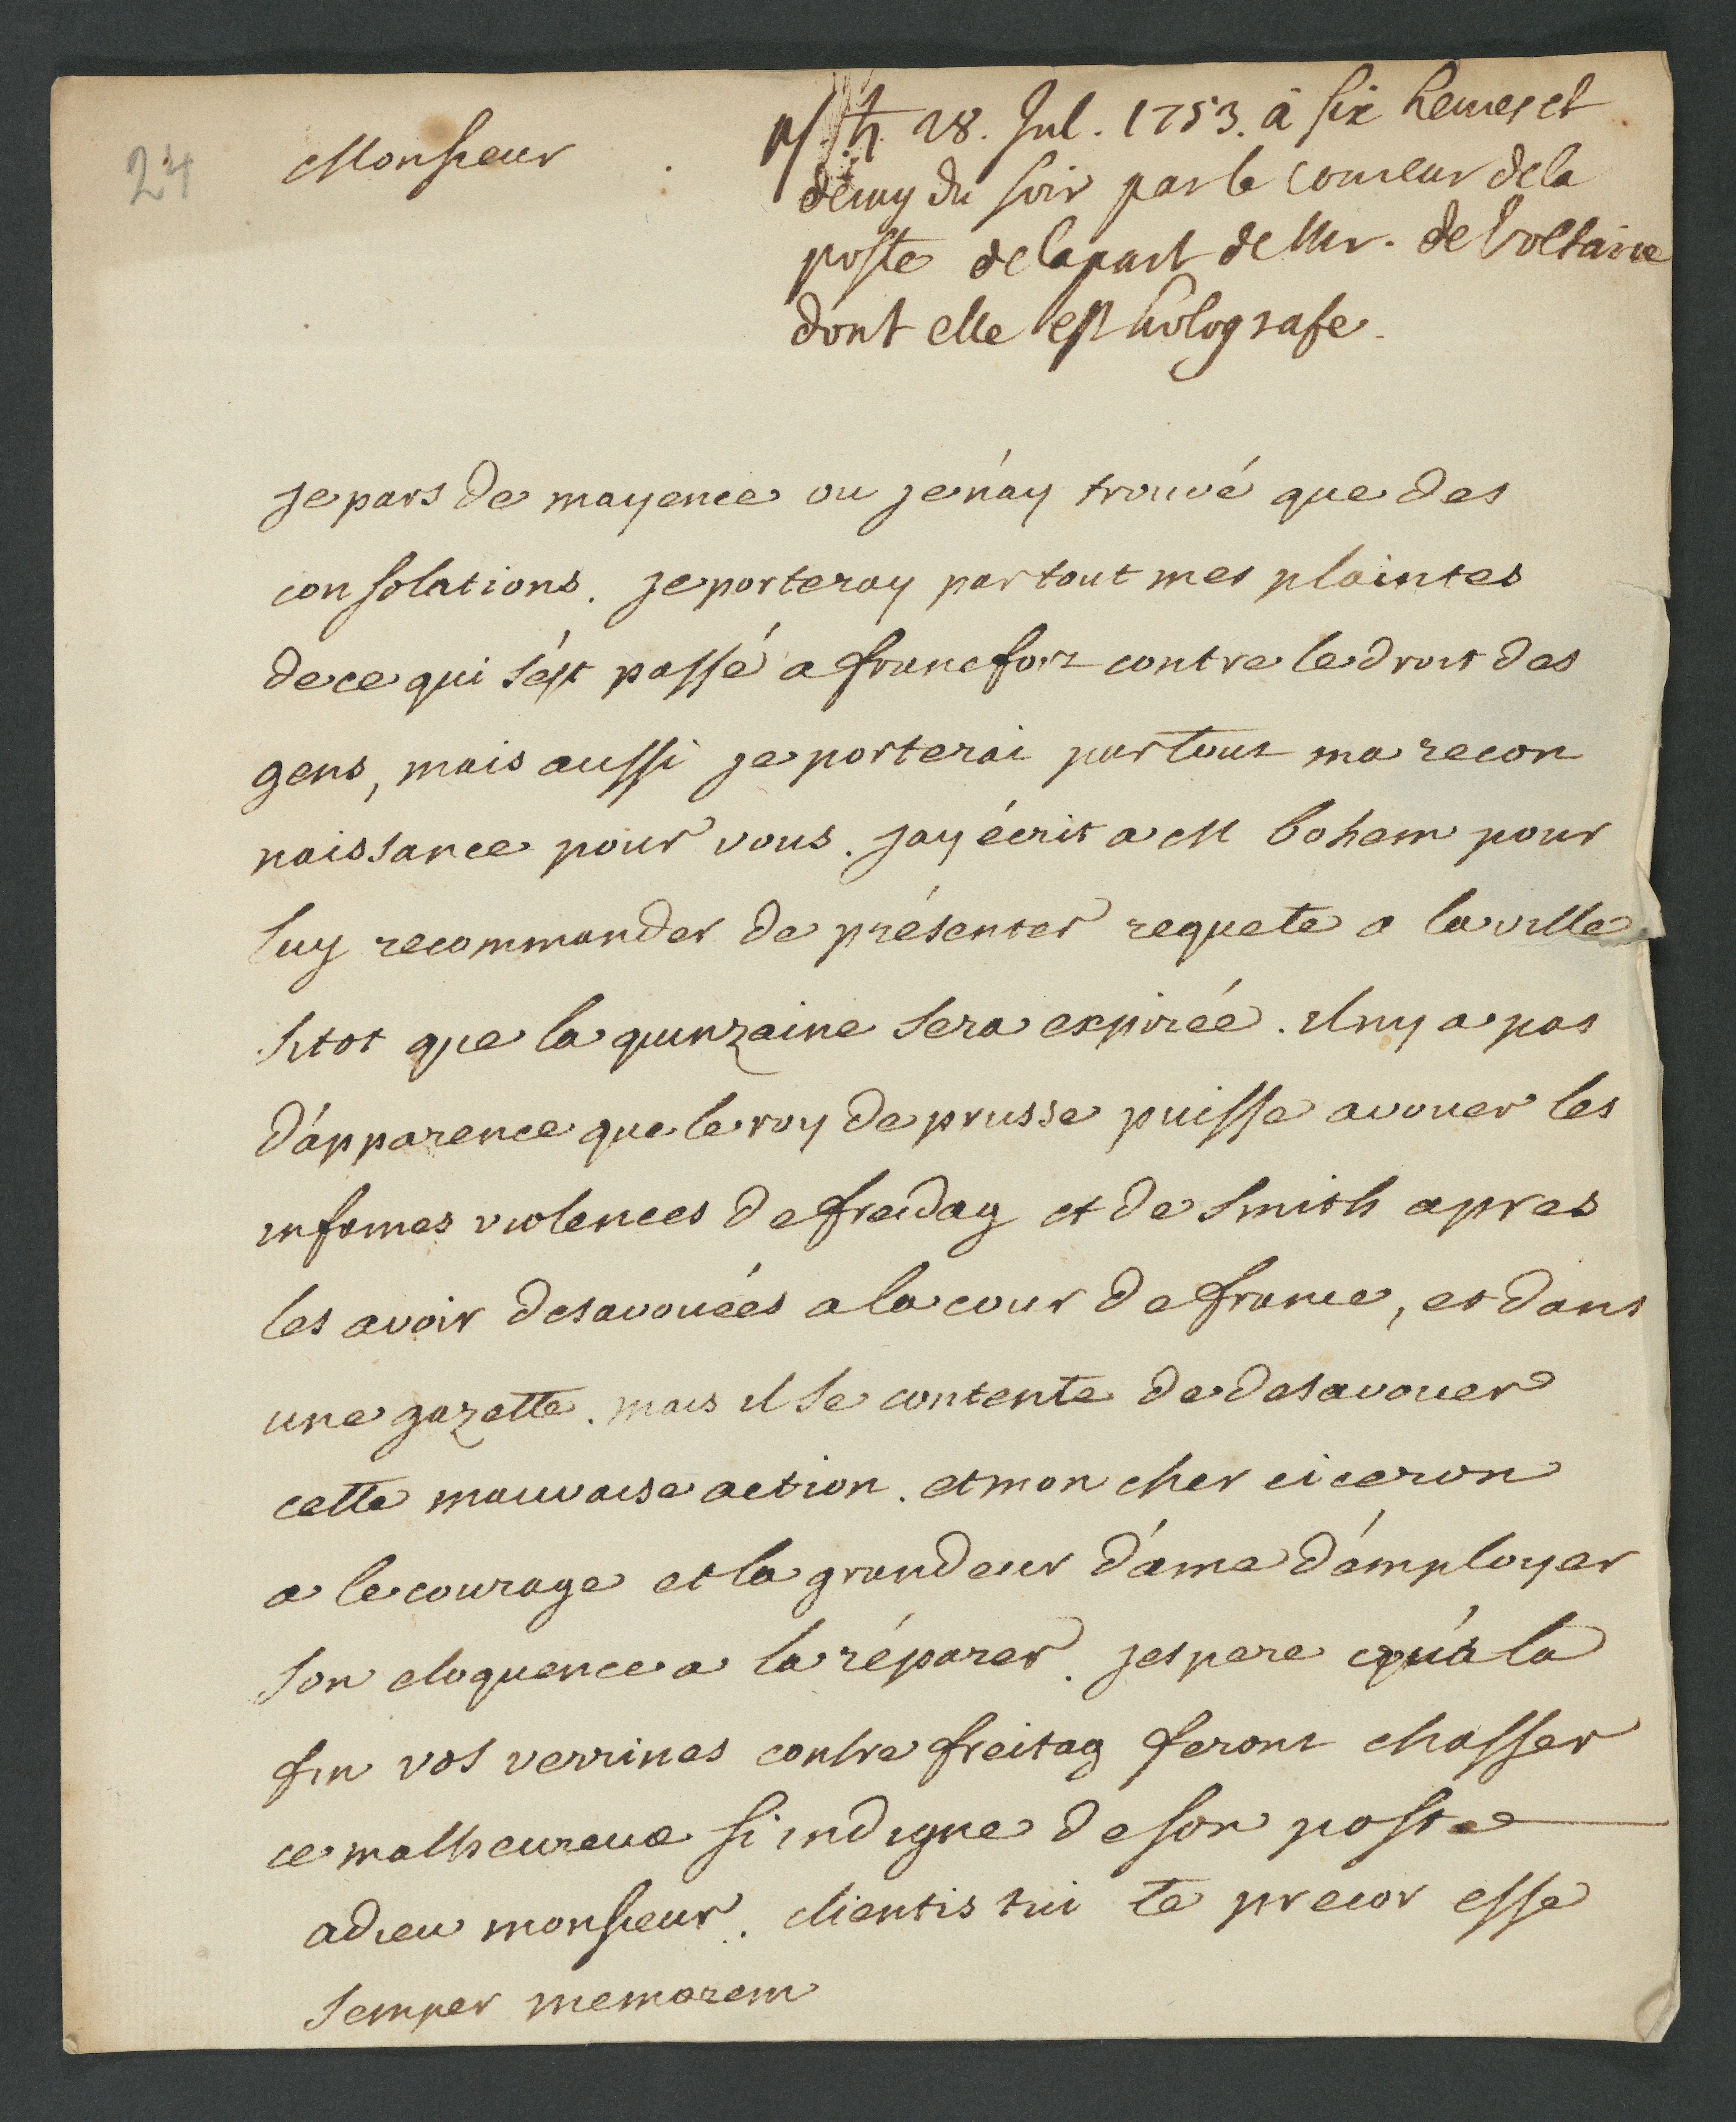 24
Monsieur
p/ ♄ 28. Jul. 1753. â six heures et
demy du soir par le coureur dela
poste delapart de Mr. de Voltaire
dont elle est holografe.
je pars de mayence ou je n'ay trouvé que des
consolations. je porteray partout mes plaintes
de ce qui s'est passé a francfort contre le droit des
gens, mais aussi je porterai partout ma recon
naissance pour vous. jay écrit a M bohem pour
luy recommander de présenter requete a la ville
sitot que la quinzaine sera expirée. il ny a pas
d'apparence que le roy de prusse puisse avouer les
infames violences de freidag et de smith apres
les avoir desavouées a la cour de france, et dans
une gazette. mais il se contente de desavouer
cette mauvaise action. et mon cher ciceron
a le courage et la grandeur d'ame d'employer
son eloquence a la réparer. jespere qu'a la
fin vos verrines contre freitag feront chasser
ce malheureux si indigne de son poste
adieu monsieur. clientis tui te precor esse
semper memorem